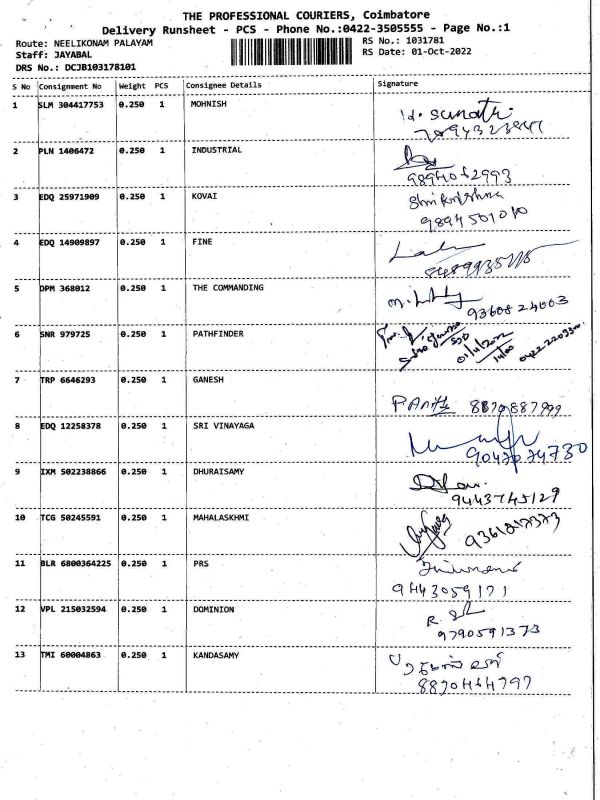 THE PROFESSIONAL COURIERS, Coimbatore
Delivery Runsheet - PCS - Phone No.:0422-3505555 - Page No.:1
Route: NEELIKONAM PALAYAM RS No.: 1031781
Staff: JAYABAL RS Date: 01-Oct-2022
DRS No.: DCJB103178101
S No Consignment No Weight PCS Consignee Details Signature
1 SLM 304417753 0.250 1 MOHNISH
2 PLN 1406472 0.250 1 INDUSTRIAL
3 EDQ 25971909 0.250 1 KOVAI
9894501010
4 EDQ 14909897 0.250 1 FINE
5 DPM 368012 0.250 1 THE COMMANDING
9360824003
6 SNR 979725 0.250 1 PATHFINDER
7 TRP 6646293 0.250 1 GANESH
8870887999
8 EDQ 12258378 0.250 1 SRI VINAYAGA
9047074730
9 IXM 502238866 0.250 1 DHURAISAMY
9443745129
10 TCG 50245591 0.250 1 MAHALASKHMI
9361817373
11 BLR 6800364225 0.250 1 PRS
9443059171
12 VPL 215032594 0.250 1 DOMINION
9790591373
13 TMI 60004863 0.250 1 KANDASAMY